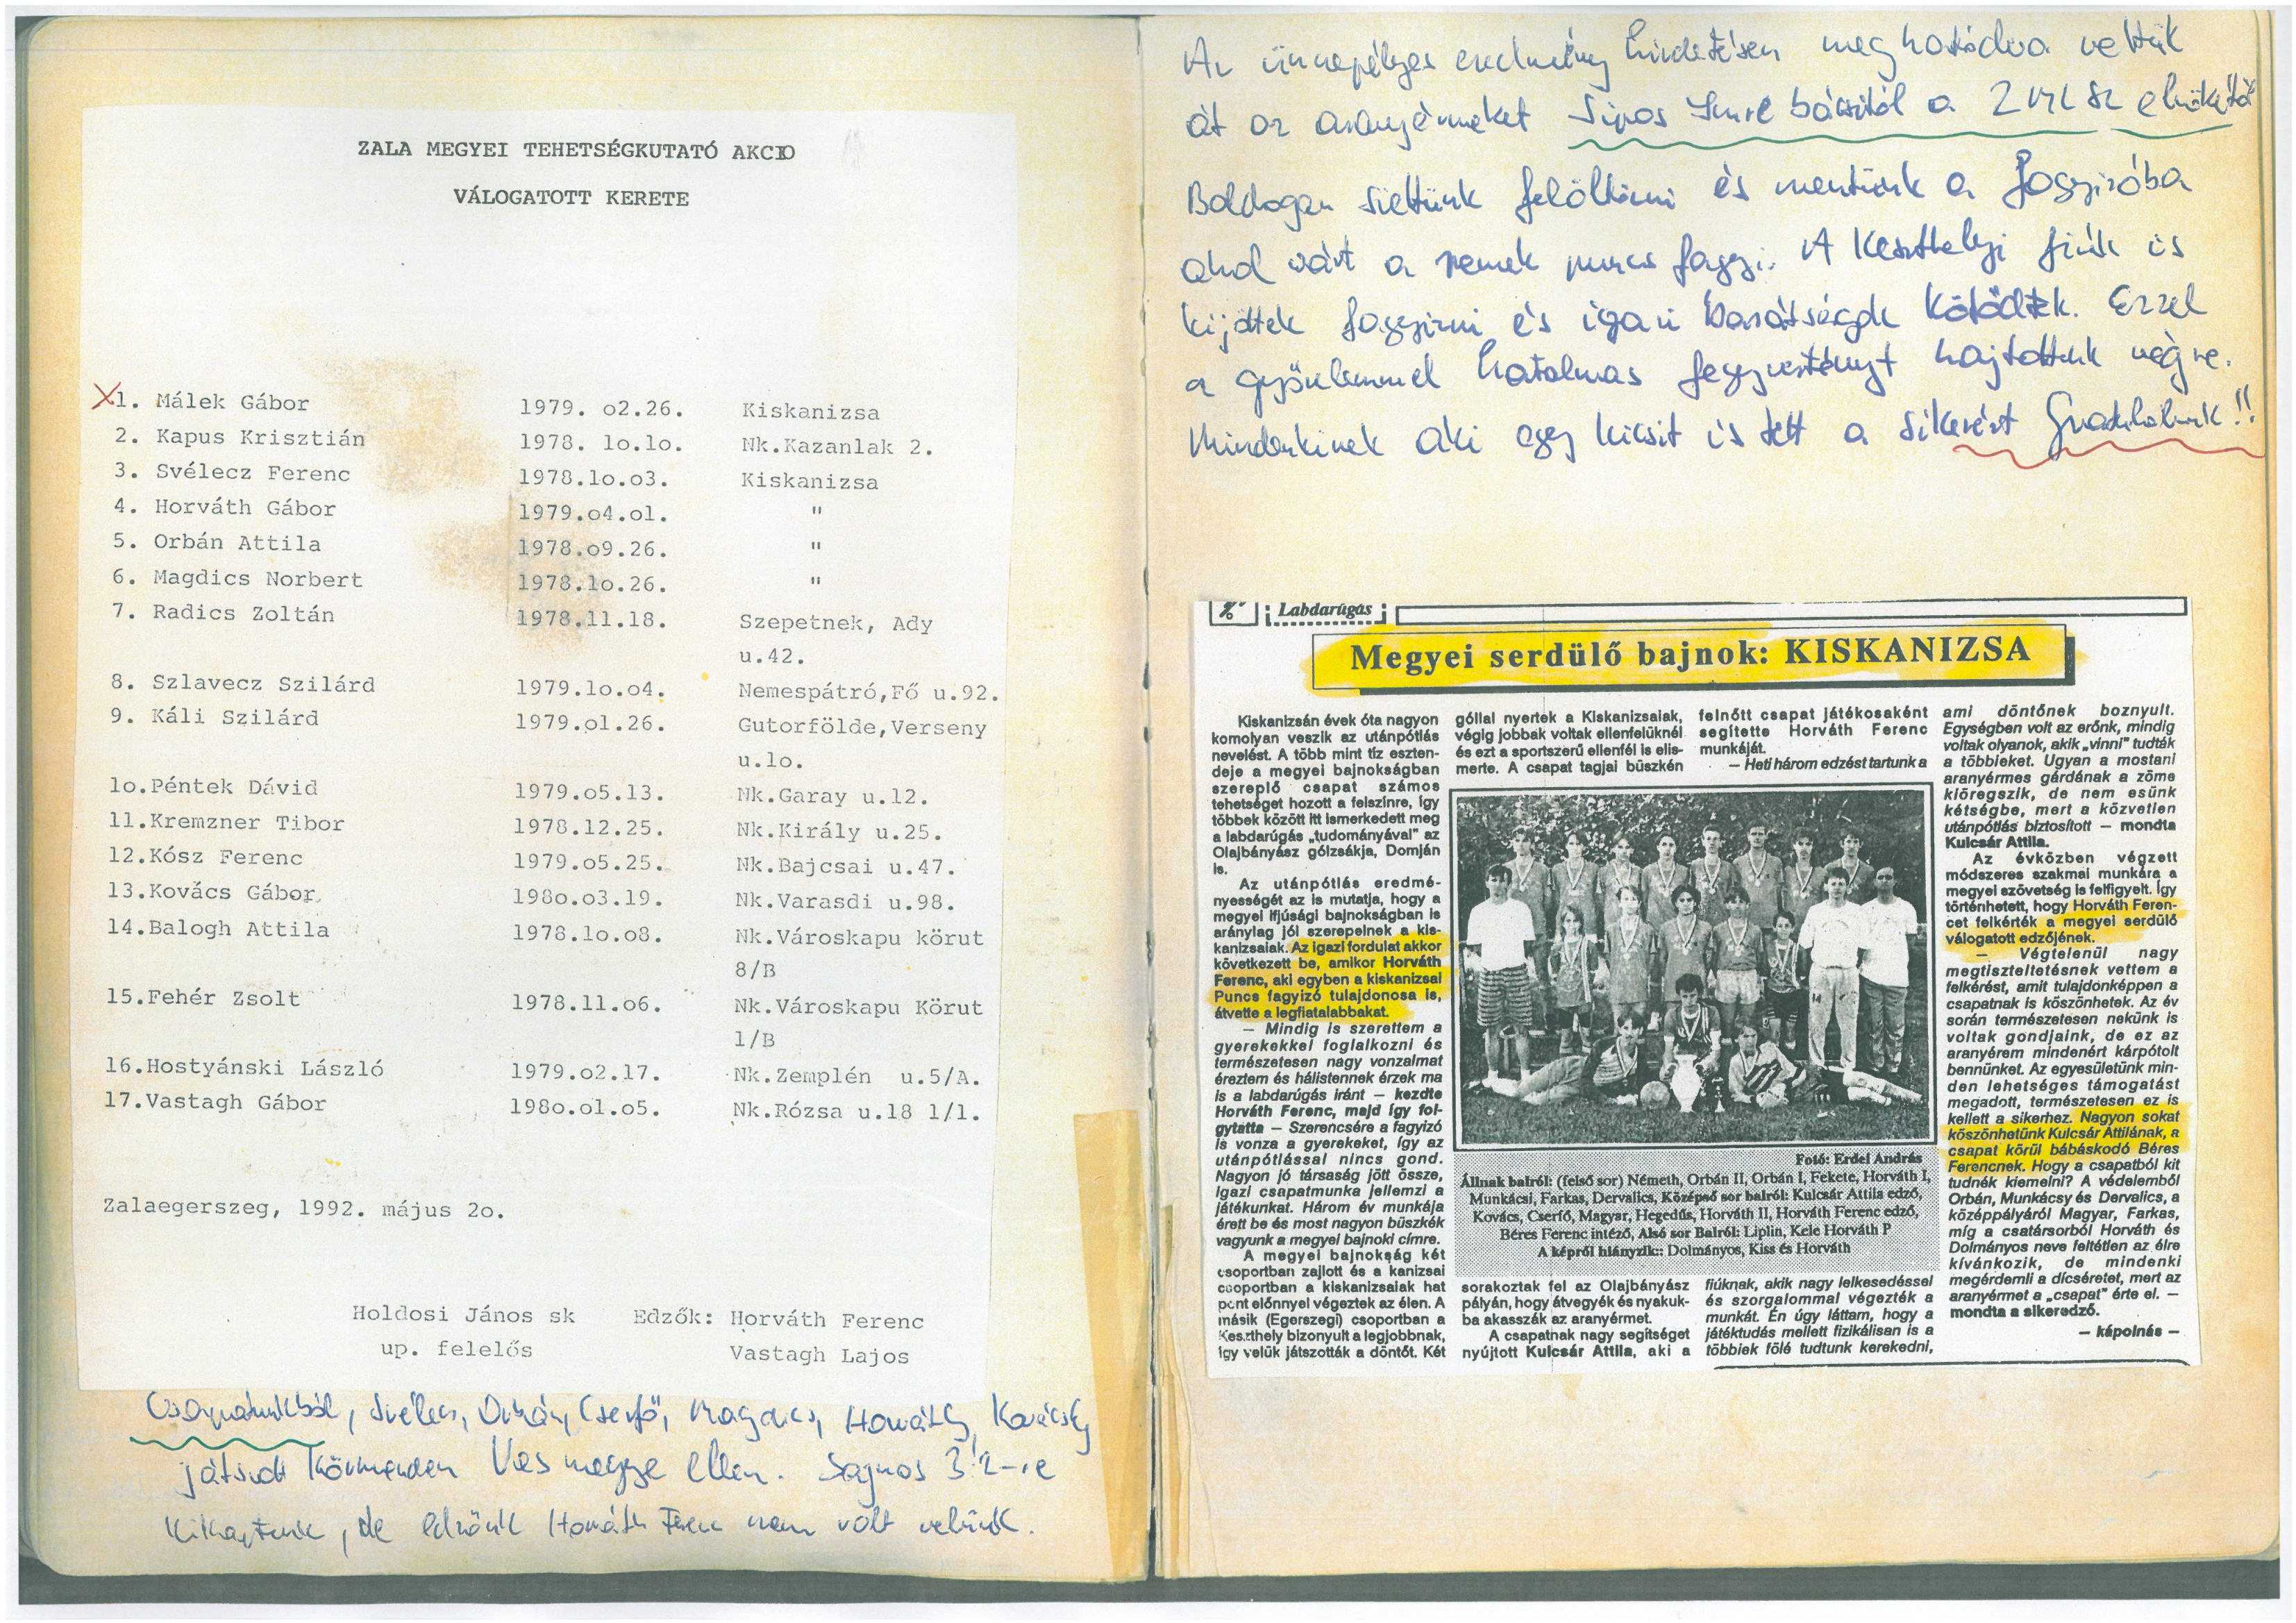 ZALA MEGYEI TEHETSÉGKUTATÓ AKCIO
VÁLOGATOTT KERETE
X1. Málek Gábor 1979. o2.26. Kiskanizsa
2. Kapus Krisztián 1978. lo.lo. Nk.Kazanlak 2.
3. Svélecz Ferenc 1978.lo.o3. Kiskanizsa
4. Horváth Gábor 1979.o4.ol. "
5. Orbán Attila 1978.o9.26. "
6. Magdics Norbert 1978.lo.26. "
7. Radics Zoltán 1978.11.18. Szepetnek, Ady
u.42.
8. Szlavecz Szilárd 1979.lo.o4. Nemespátró,Fő u.92.
9. Káli Szilárd 1979.ol.26. Gutorfölde,Verseny
u.lo.
lo.Péntek Dávid 1979.o5.13. Nk.Garay u.12.
11.Kremzner Tibor 1978.12.25. Nk.Király u.25.
12.Kósz Ferenc 1979.o5.25. Nk.Bajcsai u.47.
13.Kovács Gábor 198o.o3.19. Nk.Varasdi u.98.
14.Balogh Attila 1978.lo.o8. Nk.Városkapu körut
8/B
15.Fehér Zsolt 1978.11.o6. Nk.Városkapu Körut
1/B
16.Hostyánski László 1979.o2.17. Nk.Zemplén u.5/A.
17.Vastagh Gábor 198o.ol.o5. Nk.Rózsa u.18 1/1.
Zalaegerszeg, 1992. május 2o.
Holdosi János sk Edzők: Horváth Ferenc
up. felelős Vastagh Lajos
Csapatunkból, Svélecz, Orbán, Cserfő, Magdics, Horváth, Kovács
játszott Körmenden Vas megye ellen. Sajnos 3:2-re
kikaptunk, de edzőnk Horváth Ferenc nem volt velünk.
Az ünnepélyes eredmény hirdetésen meghatódva vettük
át az aranyérmeket Sipos Imre bácsitól a ZMLSZ elnökétől
Boldogan siettünk felöltözni és mentünk a fagyizóba
ahol várt a remek puncs fagyi. A Keszthelyi fiúk is
kijöttek fagyizni és igazi barátságok kötődtek. Ezzel
a győzelemmel hatalmas fegyvertényt hajtottunk végre.
Mindenkinek aki egy kicsit is tett a sikerért Gratulálunk!!
Labdarúgás
Megyei serdülő bajnok: KISKANIZSA
Kiskanizsán évek óta nagyon
komolyan veszik az utánpótlás
nevelést. A több mint tíz eszten-
deje a megyei bajnokságban
szereplő csapat számos
tehetséget hozott a felszínre, így
többek között itt ismerkedett meg
a labdarúgás „tudományával" az
Olajbányász gólzsákja, Domján
is.
Az utánpótlás eredmé-
nyességét az is mutatja, hogy a
megyei ifjúsági bajnokságban is
aránylag jól szerepelnek a kis-
kanizsaiak. Az igazi fordulat akkor
következett be, amikor Horváth
Ferenc, aki egyben a kiskanizsai
Puncs fagyizó tulajdonosa is,
átvette a legfiatalabbakat.
— Mindig is szerettem a
gyerekekkel foglalkozni és
természetesen nagy vonzalmat
éreztem és hálistennek érzek ma
is a labdarúgás iránt — kezdte
Horváth Ferenc, majd így foly-
gytatta — Szerencsére a fagyizó
is vonza a gyerekeket, így az
utánpótlással nincs gond.
Nagyon jó társaság jött össze,
igazi csapatmunka jellemzi a
játékunkat. Három év munkája
érett be és most nagyon büszkék
vagyunk a megyei bajnoki címre.
A megyei bajnokság két
csoportban zajlott és a kanizsai
csoportban a kiskanizsaiak hat
pont előnnyel végeztek az élen. A
másik (Egerszegi) csoportban a
Keszthely bizonyult a legjobbnak,
így velük játszották a döntőt. Két
góllal nyertek a Kiskanizsaiak,
végig jobbak voltak ellenfelüknél
és ezt a sportszerű ellenfél is elis-
merte. A csapat tagjai büszkén
sorakoztak fel az Olajbányász
pályán, hogy átvegyék és nyakuk-
ba akasszák az aranyérmet.
A csapatnak nagy segítséget
nyújtott Kulcsár Attila, aki a
felnőtt csapat játékosaként
segítette Horváth Ferenc
munkáját.
— Heti három edzést tartunk a
fiúknak, akik nagy lelkesedéssel
és szorgalommal végezték a
munkát. Én úgy láttam, hogy a
játéktudás mellett fizikálisan is a
többiek fölé tudtunk kerekedni,
ami döntőnek boznyult.
Egységben volt az erőnk, mindig
voltak olyanok, akik „vinni" tudták
a többieket. Ugyan a mostani
aranyérmes gárdának a zöme
kiöregszik, de nem esünk
kétségbe, mert a közvetlen
utánpótlás biztosított — mondta
Kulcsár Attila.
Az évközben végzett
módszeres szakmai munkára a
megyei szövetség is felfigyelt. Így
történhetett, hogy Horváth Feren-
cet felkérték a megyei serdülő
válogatott edzőjének.
— Végtelenül nagy
megtiszteltetésnek vettem a
felkérést, amit tulajdonképpen a
csapatnak is köszönhetek. Az év
során természetesen nekünk is
voltak gondjaink, de ez az
aranyérem mindenért kárpótolt
bennünket. Az egyesületünk min-
den lehetséges támogatást
megadott, természetesen ez is
kellett a sikerhez. Nagyon sokat
köszönhetünk Kulcsár Attilának, a
csapat körül bábáskodó Béres
Ferencnek. Hogy a csapatból kit
tudnék kiemelni? A védelemből
Orbán, Munkácsy és Dervalics, a
középpályáról Magyar, Farkas,
míg a csatársorból Horváth és
Dolmányos neve feltétlen az élre
kívánkozik, de mindenki
megérdemli a dícséretet, mert az
aranyérmet a „csapat" érte el. —
mondta a sikeredző.
— kápolnás —
Fotó: Erdei András
Állnak balról: (felső sor) Németh, Orbán II, Orbán I, Fekete, Horváth I,
Munkácsi, Farkas, Dervalics, Középső sor balról: Kulcsár Attila edző,
Kovács, Cserfő, Magyar, Hegedűs, Horváth II, Horváth Ferenc edző,
Béres Ferenc intéző, Alsó sor Balról: Liplin, Kele Horváth P
A képről hiányzik:: Dolmányos, Kiss és Horváth